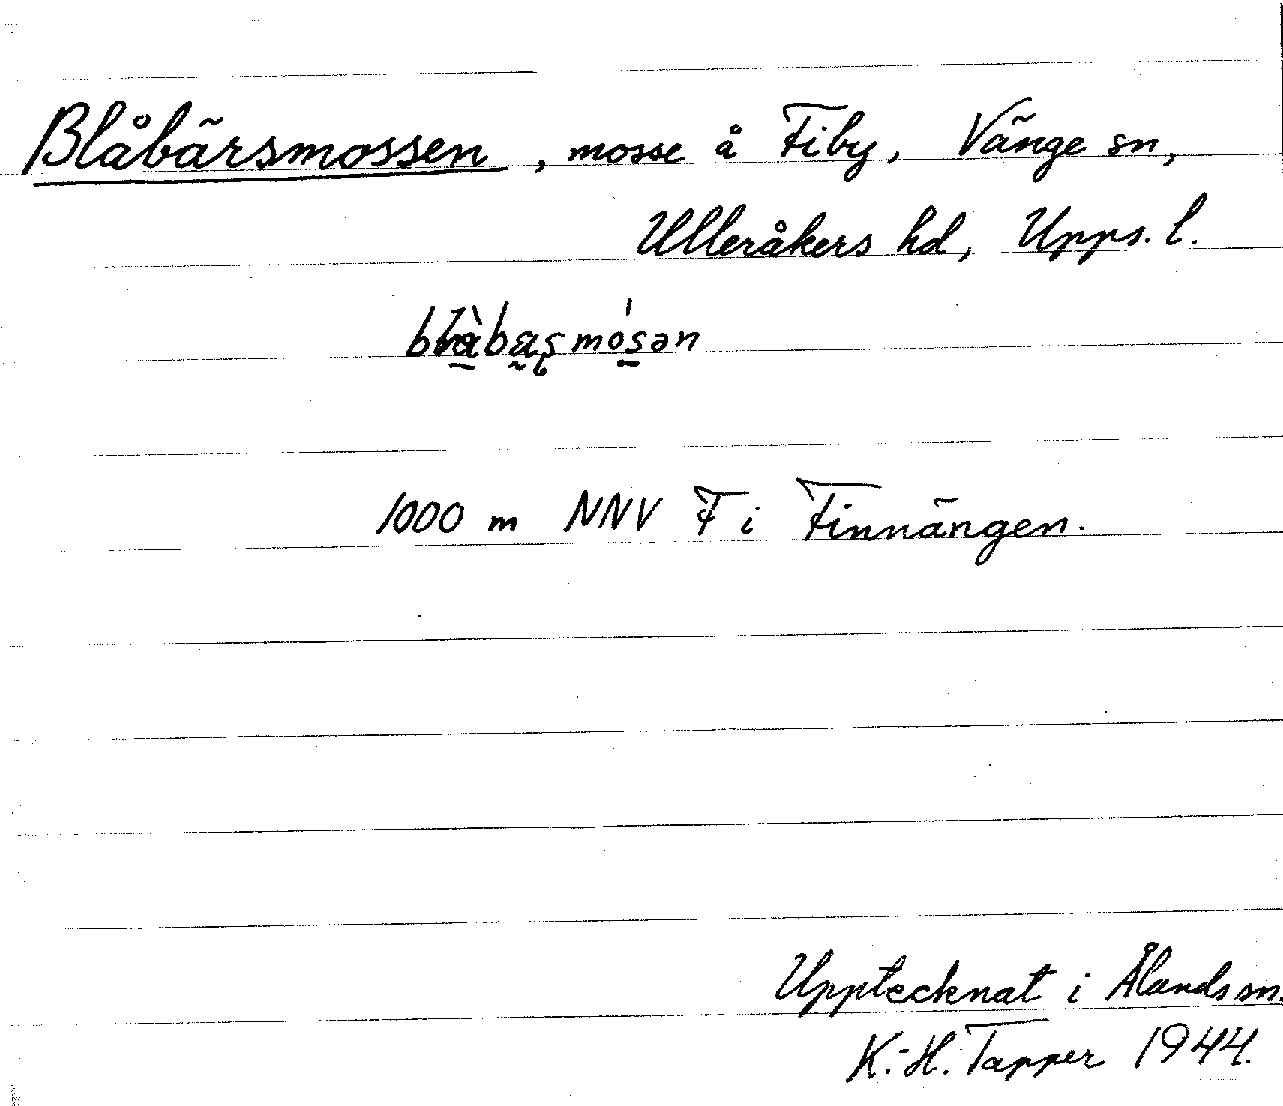 Blåbärsmossen, mosse å Fiby, Vänge sn,
Ulleråkers hd, Upps. l.
1000 m NNV F i Finnängen.
Upptecknat i Ålands sn.
K.-H. Tapper 1944.